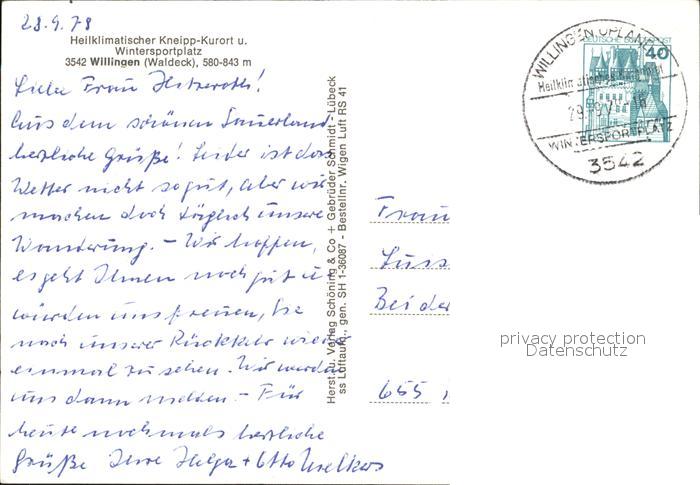 28.9.78
Heilklimatischer Kneipp-Kurort u.
Wintersportplatz
3542 Willingen (Waldeck), 580-843 m
Liebe Frau
Aus dem schönen Sauerland
herzliche Grüße! Leider ist das
Wetter nicht so gut, aber wir
machen doch täglich unsere
Wanderung. – Wir hoffen,
es geht Ihnen noch gut u.
würden uns freuen, Sie
nach unserer Rückkehr wieder
einmal zu sehen. Wir werden
uns dann melden. – Für
heute nochmals herzliche
Grüße Ihre Helga + Otto
Herst. u. Verlag Schöning & Co + Gebrüder Schmidt - Lübeck
ss Luftaufn., gen. SH 1-36087 - Bestellnr. Wigen Luft RS 41
WILLINGEN, UPLAND
DEUTSCHE BUNDESPOST
40
Heilklimatisches
29.-9.7 -16
WINTERSPORTPLATZ
3542
Frau
Beider
655
privacy protection
Datenschutz